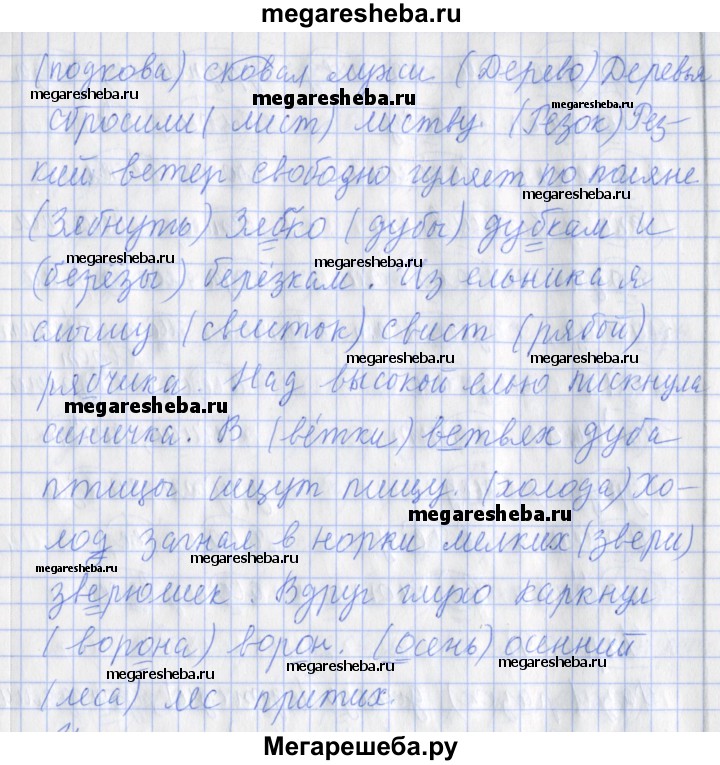 megaresheba.ru
(подкова) сковал лужи. (Дерево) Деревья
megaresheba.ru megaresheba.ru megaresheba.ru
сбросили (лист) листву. (Резок) Рез-
кий ветер свободно гуляет по поляне
megaresheba.ru
(Зябнуть) Зябко (дубы) дубкам и
megaresheba.ru megaresheba.ru
(берёзы) берёзкам. Из ельника я
слышу (свисток) свист (рябой)
megaresheba.ru megaresheba.ru
рябчика. Над высокой елью пискнула
megaresheba.ru
синичка. В (ветки) ветвях дуба
птицы ищут пищу. (холода) Хо-
megaresheba.ru
лод загнал в норки мелких (звери)
megaresheba.ru megaresheba.ru
зверюшек. Вдруг глухо каркнул
(ворона) ворон. (осень) осенний
megaresheba.ru megaresheba.ru megaresheba.ru
(леса) лес притих.
Мегарешеба.ру